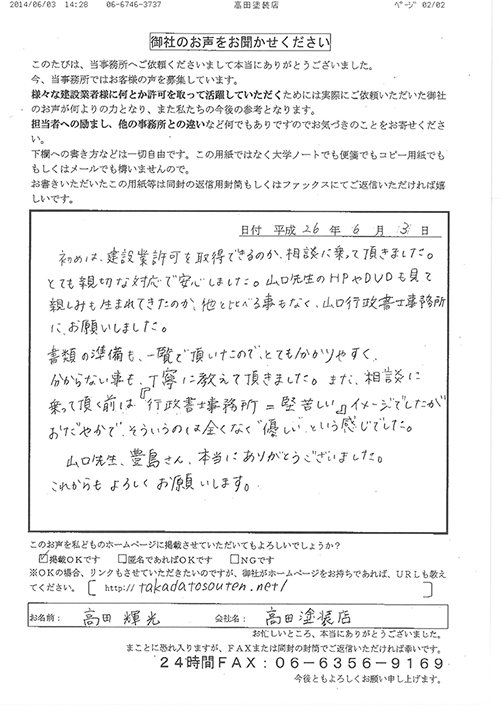 2014/06/03 14:28 06-6746-3737 高田塗装店 ページ 02/02
御社のお声をお聞かせください
このたびは、当事務所へご依頼くださいまして本当にありがとうございました。
今、当事務所ではお客様の声を募集しています。
様々な建設業者様に何とか許可を取って活躍していただくためには実際にご依頼いただいた御社
のお声が何よりの力となり、また私たちの今後の参考となります。
担当者への励まし、他の事務所との違いなど何でもありですのでお気づきのことをお寄せくださ
い。
下欄への書き方などは一切自由です。この用紙ではなく大学ノートでも便箋でもコピー用紙でも
もしくはメールでも構いませんので。
お書きいただいたこの用紙等は同封の返信用封筒もしくはファックスにてご返信いただければ嬉
しいです。
日付 平成 26 年 6 月 3 日
初めは、建設業許可を取得できるのか、相談に乗って頂きました。
とても親切な対応で安心しました。山口先生のHPやDVDも見て
親しみも生まれてきたのか、他と比べる事もなく、山口行政書士事務所
に、お願いしました。
書類の準備も、一覧で頂いたので、とても分かりやすく、
分からない事も、丁寧に教えて頂きました。また、相談に
乗って頂く前は『行政書士事務所=堅苦しい』イメージでしたが
おだやかで、そういうのは全くなく"優しい"という感じでした。
山口先生、豊島さん、本当にありがとうございました。
これからもよろしくお願いします。
このお声を私どものホームページに掲載させていただいてもよろしいでしょうか?
☑掲載OKです □匿名であればOKです □NGです
※OKの場合、リンクもさせていただきたいのですが、御社がホームページをお持ちであれば、URLも教え
てください。[ http://takadatosouten.net/ ]
お名前: 高田 輝光 会社名: 高田塗装店
お忙しいところ、本当にありがとうございました。
まことに恐れ入りますが、FAXまたは同封の封筒でご返信いただければ幸いです。
24時間FAX:06-6356-9169
今後ともよろしくお願い申し上げます。